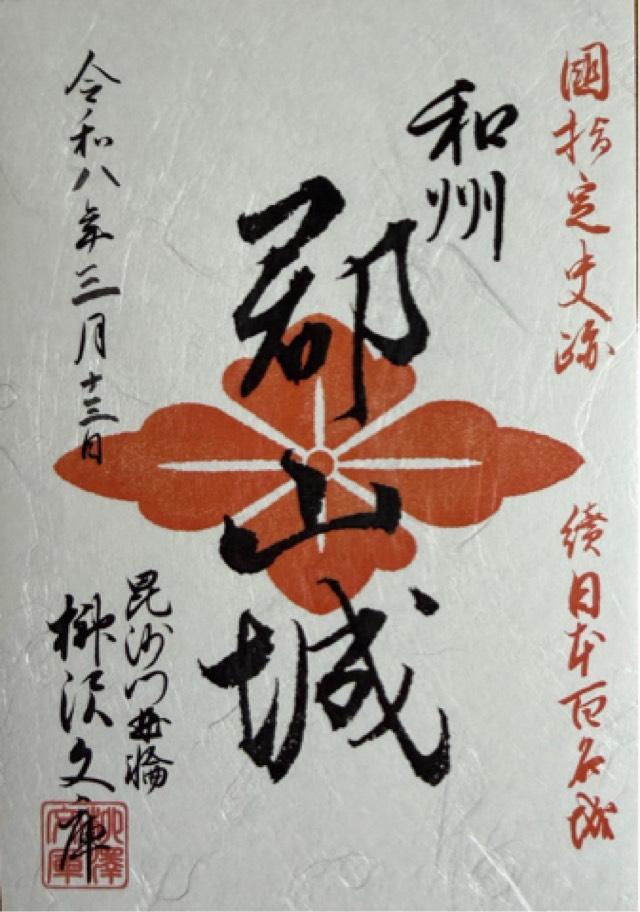 國指定史跡
續日本百名城
和州
郡山城
令和八年三月十三日
毘沙門曲輪
柳沢文庫
柳澤文庫